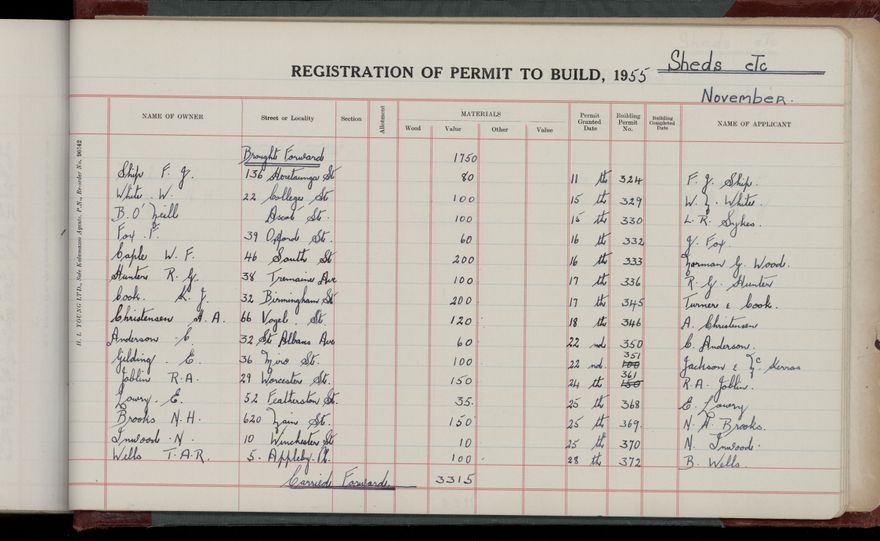 Sheds etc
REGISTRATION OF PERMIT TO BUILD, 1955
November.
NAME OF OWNER Street or Locality Section Allotment MATERIALS Permit Granted Date Building Permit No. Building Completed Date NAME OF APPLICANT
Wood Value Other Value
Brought Forward 1750
Ship F. J. 136 St 80 11 th 324 F. J. Ship.
White. W. 22 College St 100 15 th 329 W. White.
B. O'Neill Ascot St. 100 15 th 330 L. R. Sykes.
Fox F. 39 Oxford St. 60 16 th 332 J. Fox.
Caple W. F. 46 South St 200 16 th 333 Norman G. Wood.
Hunter R. G. 38 Tremaine Ave 100 17 th 336 R. G. Hunter
Cook. K. J. 32 Birmingham St 200 17 th 345 Turner & Cook.
Christensen A. A. 66 Vogel. St. 120 18 th 346 A. Christensen
Anderson C. 32 St Albans Ave 60 22 nd 350 C. Anderson.
Gilding. E. 36 Miro St. 100 22 nd. 351 100 Jackson &
Joblin R.A. 29 Worcester St. 150 24 th 361 150 R.A. Joblin.
Lowry. E. 52 Featherston St. 35. 25 th 368 E. Lowry
Brooks N.H. 620 Main St. 150 25 th 369. N. H. Brooks.
Inwood. N. 10 Winchester St 10 25 th 370 N. Inwood.
Wells T.A.R. 5. Appleby. Pl. 100 28 th 372 B. Wells.
Carried Forward. 3315